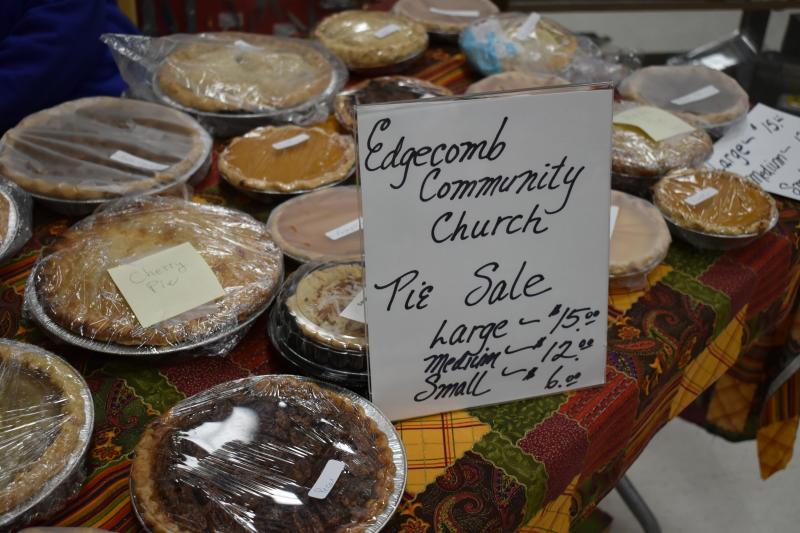 Edgecomb
Community
Church
Pie Sale
Large - $15.00
Medium - $12.00
Small - $6.00
Cherry
Pie
$15.
Medium